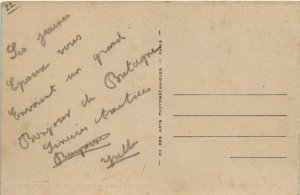 22
Les jeunes
Epoux vous
Envoient un grand
Bonjour de Bretagne
Sincères Amitiées
Cie DES ARTS PHOTOMECANIQUES - PARIS